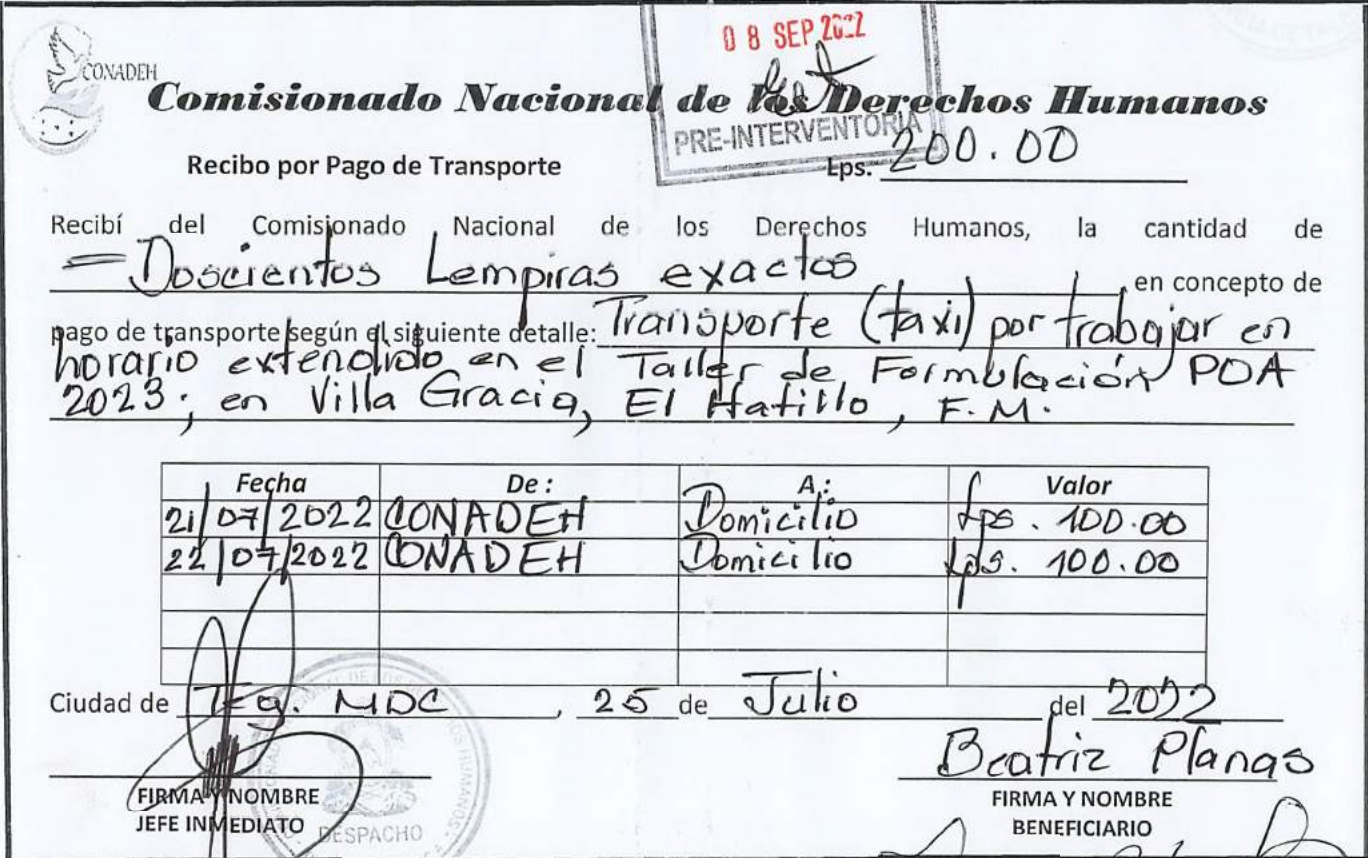 08 SEP 2022
CONADEH
Comisionado Nacional de los Derechos Humanos
PRE-INTERVENTORIA
Recibo por Pago de Transporte Lps. 200.00
Recibí del Comisionado Nacional de los Derechos Humanos, la cantidad de
Doscientos Lempiras exactos en concepto de
pago de transporte según el siguiente detalle: Transporte (taxi) por trabajar en
horario extendido en el Taller de Formulación POA
2023; en Villa Gracia, El Hatillo, F.M.
Fecha De: A: Valor
21/07/2022 CONADEH Domicilio Lps. 100.00
22/07/2022 CONADEH Domicilio Lps. 100.00
Ciudad de Teg. MDC, 25 de Julio del 2022
Beatriz Planas
FIRMA Y NOMBRE FIRMA Y NOMBRE
JEFE INMEDIATO BENEFICIARIO
DESPACHO